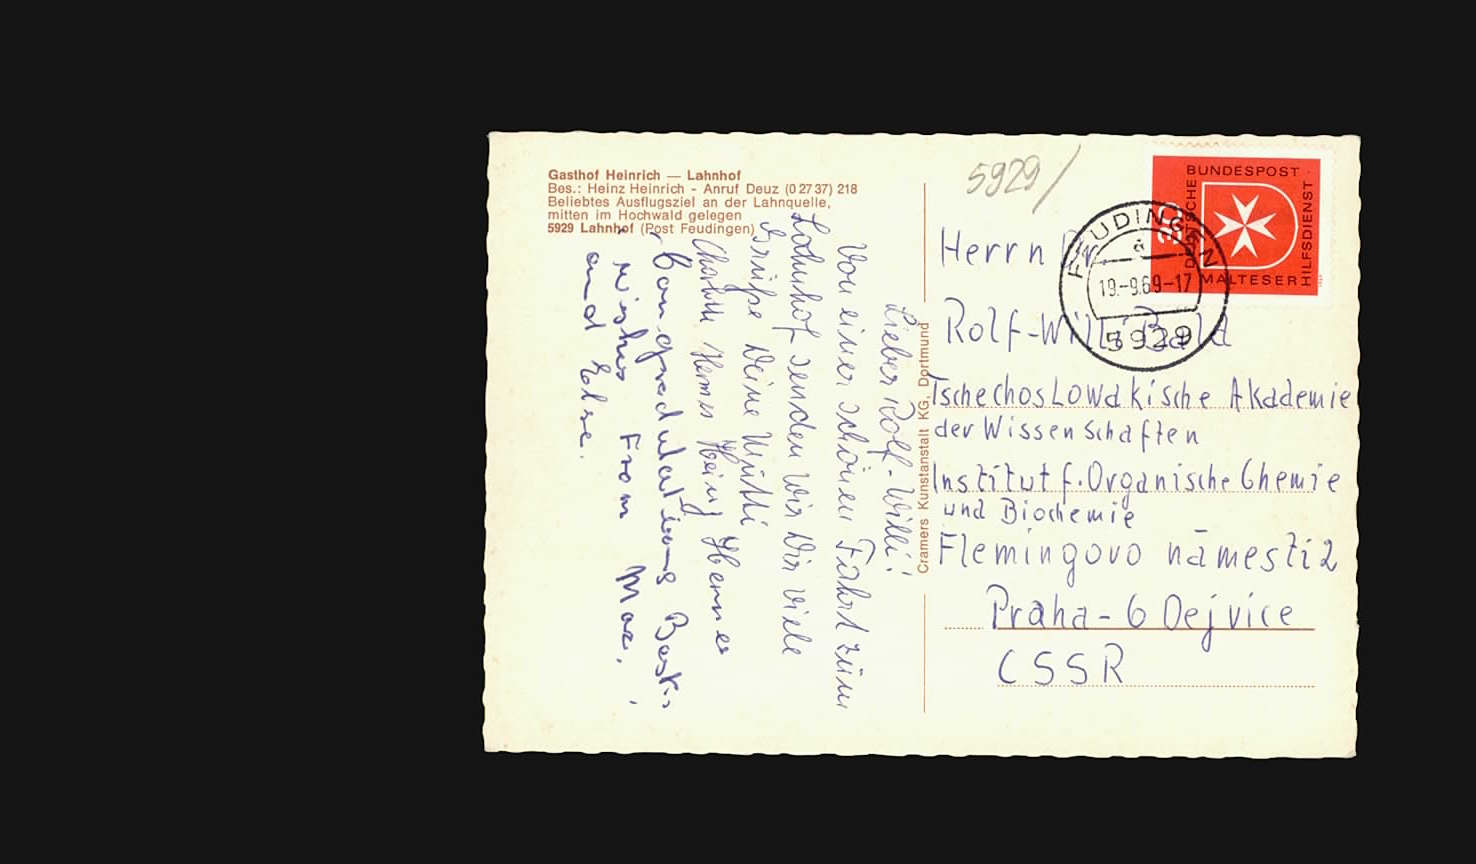 Gasthof Heinrich — Lahnhof
Bes.: Heinz Heinrich - Anruf Deuz (0 27 37) 218
Beliebtes Ausflugsziel an der Lahnquelle,
mitten im Hochwald gelegen
5929 Lahnhof (Post Feudingen)
Lieber Rolf-Willi!
Von einer schönen Fahrt zum
Lahnhof senden wir Dir viele
Grüße Deine Mutti
Heinz
Congradulations Best
wishes From Max,
and Else.
Cramers Kunstanstalt KG, Dortmund
5929/
DEUTSCHE BUNDESPOST
30
MALTESER HILFSDIENST
FEUDINGEN
a
19.-9.69-17
5929
Herrn
Rolf-Willi Bald
Tschechoslowakische Akademie
der Wissenschaften
Institut f. Organische Chemie
und Biochemie
Flemingovo námesti 2
Praha - 6 Dejvice
CSSR